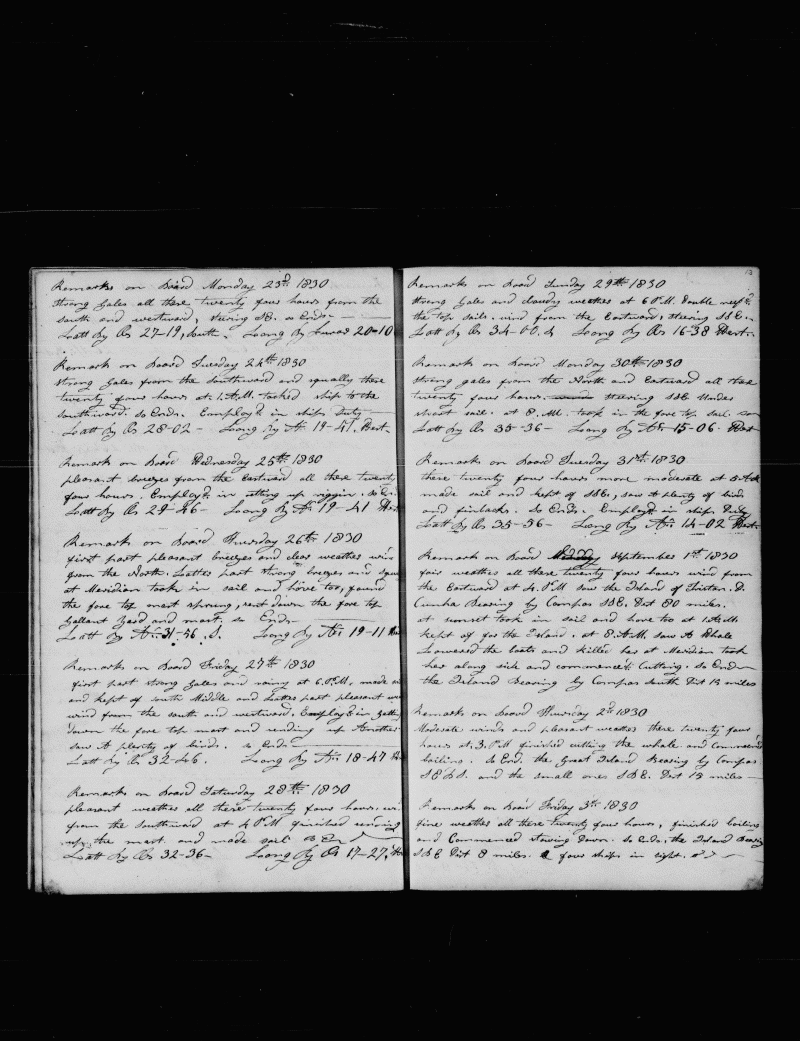 Remarks on Board Monday 23d 1830
strong gales all these twenty fours hours from the
south and westward, steering SE. so Ends
Latt By Obs 27-19, South - Loong By Lunar 20-10
Remark on Board Tuesday 24th 1830
strong gales from the southward and squally these
twenty fours hours at 1. A.M. tacked ship to the
southward. so Ends. Employd in ships Duty
Latt By Obs 28-02 - Loong By 19-41. West
Remark on Board Wednesday 25th 1830
pleasant breezes from the Eastward all these twenty
four hours. Employd. in setting up riggin. so
Latt By Obs 29-46 - Loong By 19-41
Remarks on Board Thursday 26th 1830
first part pleasant breezes and clear weather
from the North. Latter part strong breezes and
at Meridian took in sail and hove too, found
the fore top mast sprung, sent down the fore top
gallant yard and mast. so Ends
Latt By 31-56. S. Loong By 19-11
Remarks on Board Friday 27th 1830
first part strong gales and rainy at 6. P.M, made
and kept of south Middle and Latter part pleasant
wind from the south and westward. Employd in getting
down the fore top mast and sending up Another
saw A plenty of birds. so Ends
Latt By Obs 32-46. Loong By 18-47
Remarks on Board Saturday 28th 1830
pleasant weather all these twenty four hours,
from the southward at 4 P.M finished sending
up, the mast, and made sail
Latt By Obs 32-36 - Loong By 17-27,
13
Remarks on Board Sunday 29th 1830
strong gales and cloudy weather at 6 P.M. double reef'd
the top sails. wind from the Eastward, steering SSE.
Latt By Obs 34-00. S Loong By Obs 16-38 West
Remark on board Monday 30th 1830
strong gales from the North and Eastward all these
twenty fours hours. steering SSE Under
short sail. at 8. took in the fore top sail.
Latt By Obs 35-36 - Loong By 15-06. West
Remarks on Board Tuesday 31st 1830
these twenty four hours more moderate at 8
made sail and kept of SSE, saw A plenty of birds
and finbacks. So Ends. Employd in ships Duty
Latt By Obs 35-56 - Loong By 14-02 West
Remark on Board September 1st 1830
fair weather all these twenty four hours wind from
the Eastward at 4. P.M saw the Island of Tristan. D.
Cunha Bearing by Compas SSE. Dist 80 miles.
at sunset took in sail and hove too at 1 A.M.
kept of for the Island. at 8. A.M saw A Whale
Lowered the boats and killed her at Meridian took
her along side and commenced Cutting. so Ends
the Island Bearing by Compas South Dist 18 miles
Remarks on Board Thursday 2d 1830
Moderate winds and pleasant weather these twenty four
hours at 3. P.M finished cutting the whale and Commenced
boiling. So End. the Great Island Bearing by Compas
and the small ones SBE. Dist 18 miles
Remarks on Board Friday 3rd 1830
fine weather all these twenty four hours, finished boiling
and Commenced stowing down. so Ends, the Island Bearing
SBE Dist 8 miles. four ships in sight.